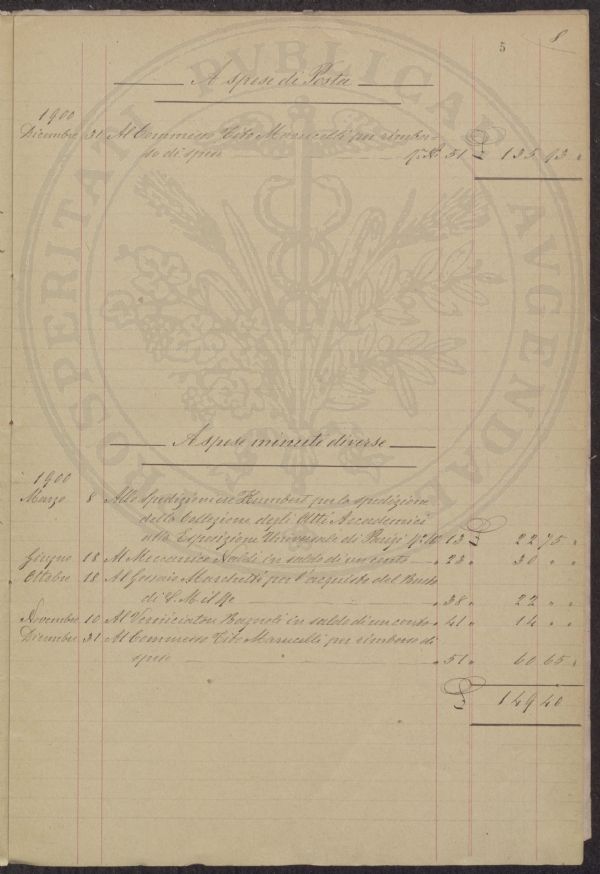 5 8
A spese di Posta
1900
Dicembre 31 Al Commesso Tito Marucelli per rimbor-
so di spese N.° 51 £ 135 93 "
A spese minute diverse
1900
Marzo 8 Allo Spedizioniere Humbert per la spedizione
della Collezione degli Atti Accademici
alla Esposizione Universale di Parigi N.° 13 £ 22 75 "
Giugno 18 Al Meccanico Naldi in saldo di un conto " 23 " 30 " "
Ottobre 18 Al per l'acquisto del Busto
di S. M. il Re " 38 " 22 " "
Novembre 10 Al Verniciatore Bagnoli in saldo di un conto " 41 " 14 " "
Dicembre 31 Al Commesso Tito Marucelli per rimborso di
spese " 51 " 60 65 "
£ 149 40
PROSPERITATI PUBLICAE AVGENDAE